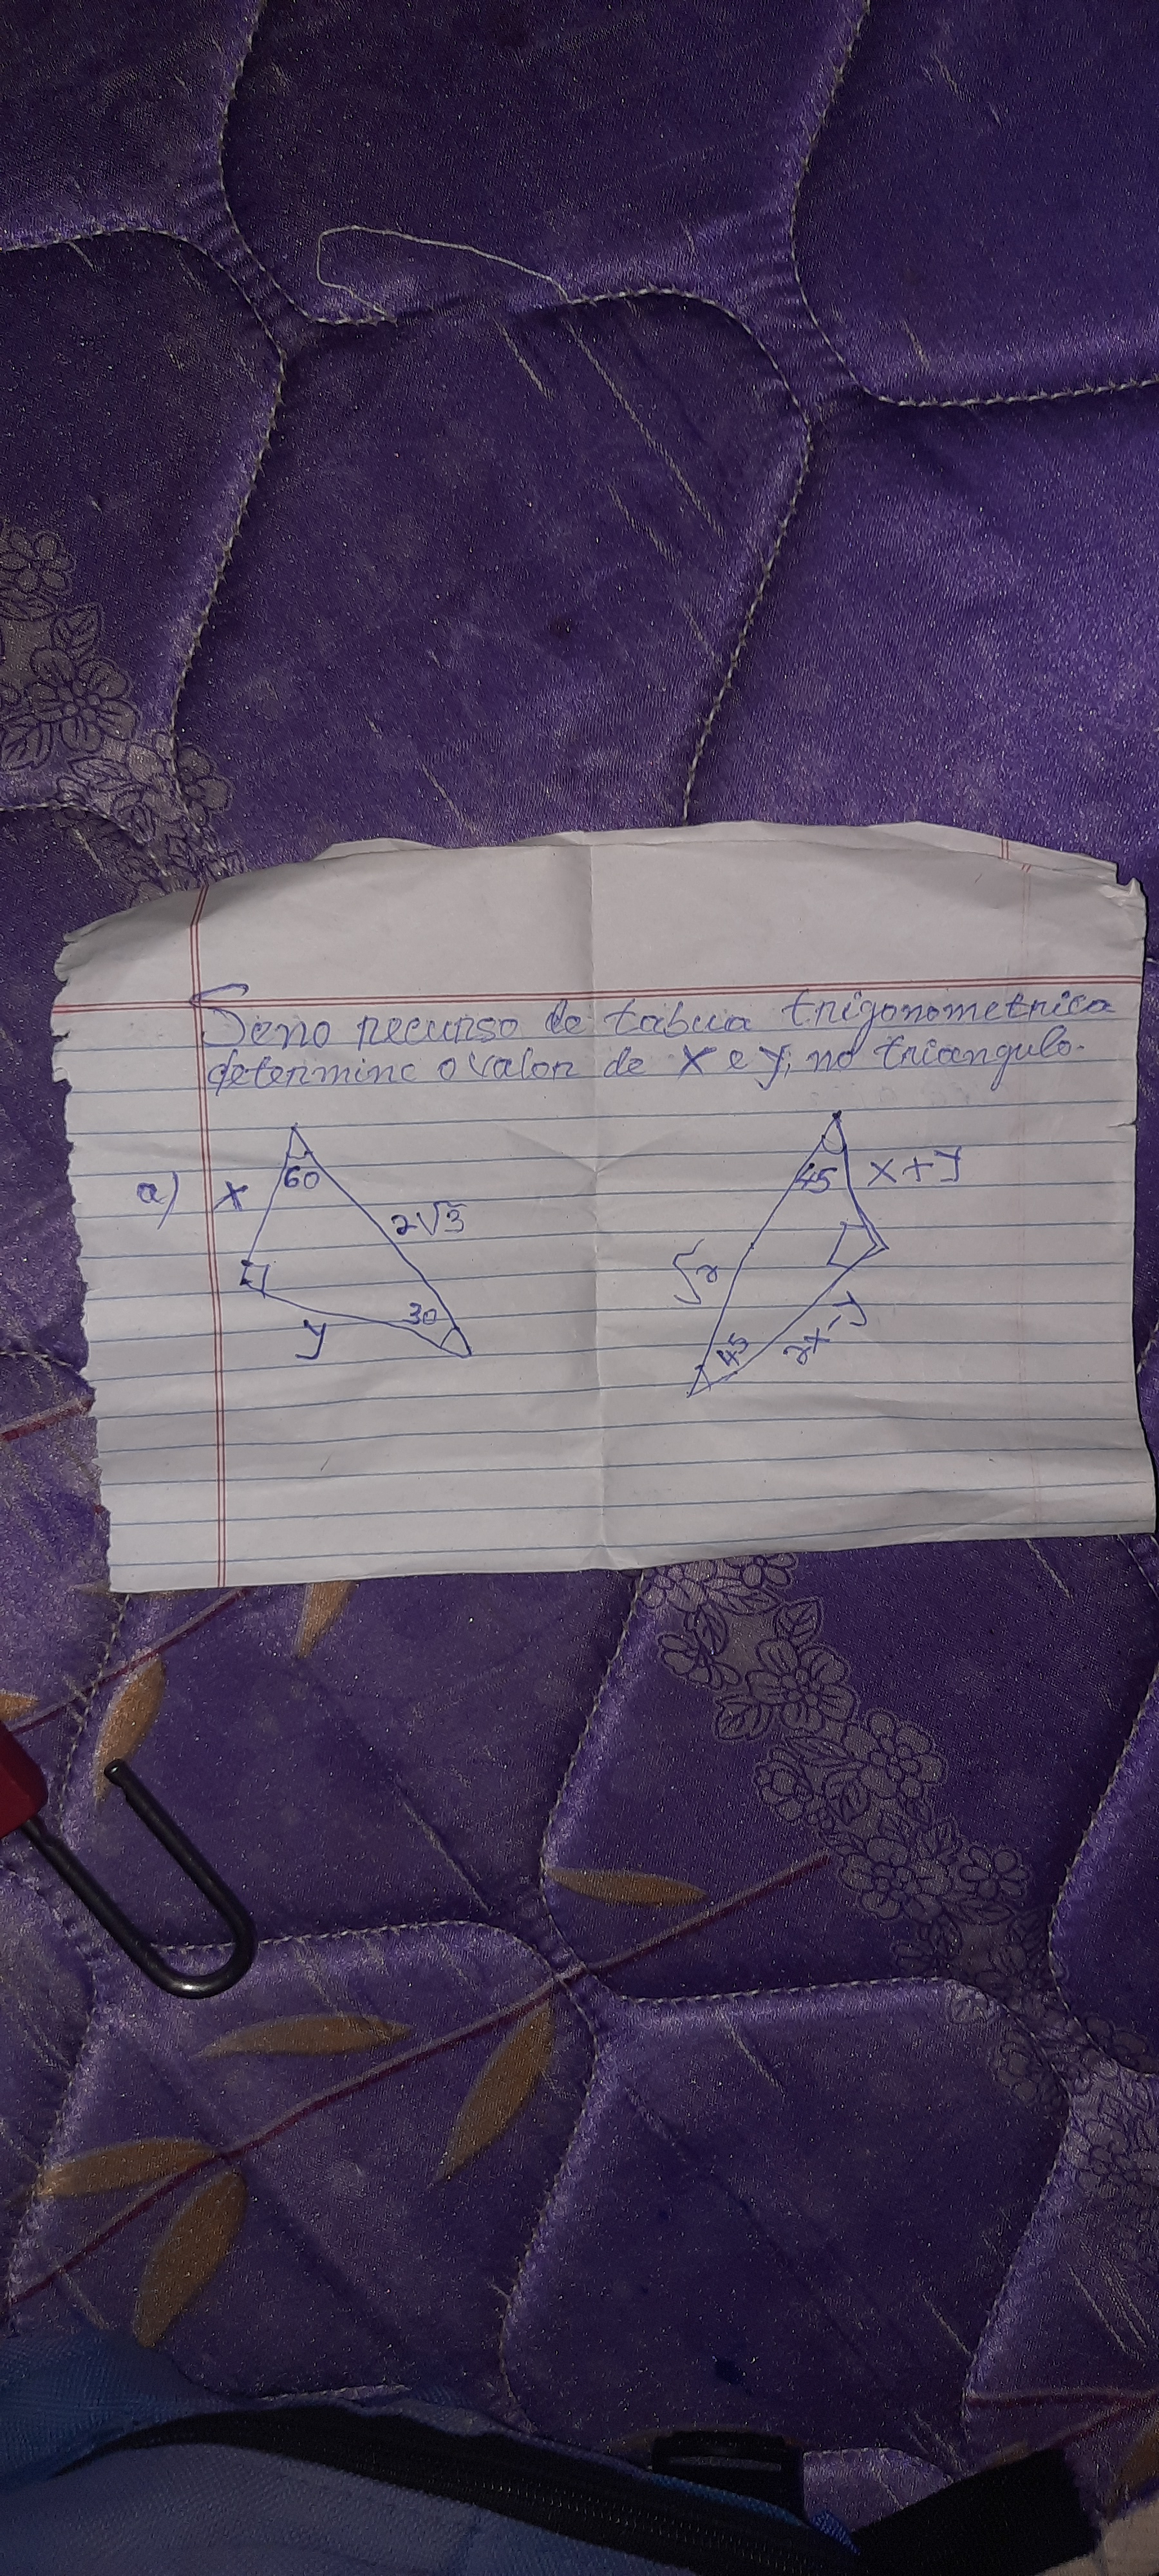 Seno recurso de tabua trigonometrica
determine o valor de x e y, no triangulo.
a) x 60 2√3
30
y
45 x+y
√2
45 2x-y